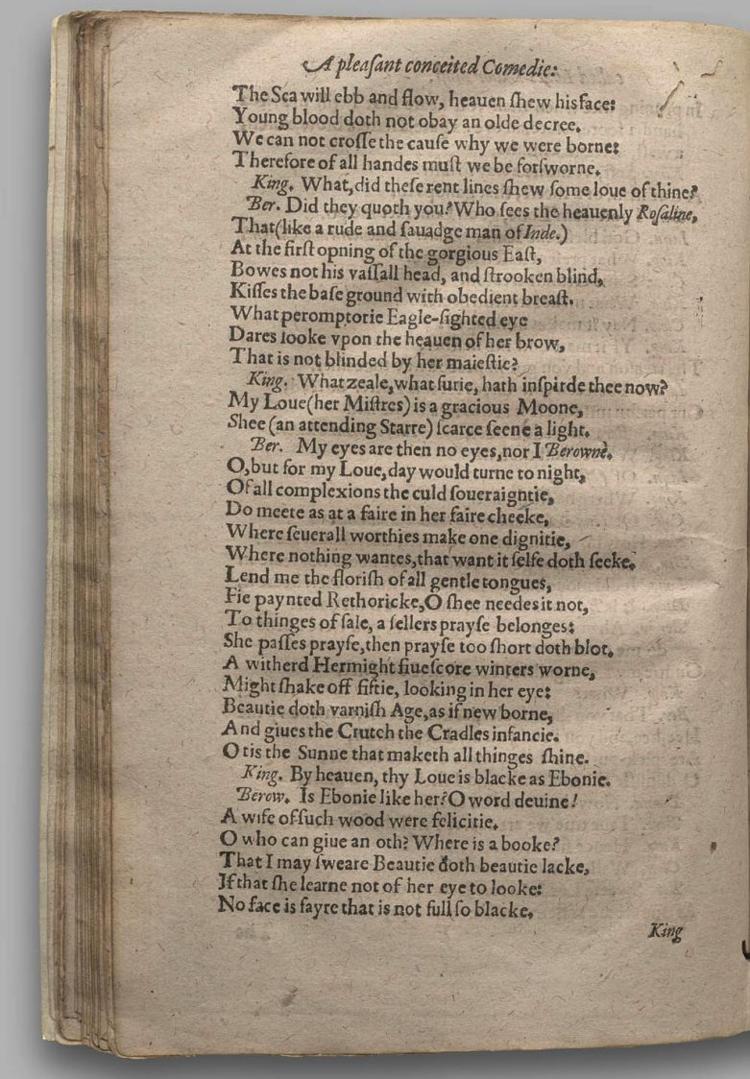 A pleaſant conceited Comedie:
The Sea will ebb and flow, heauen ſhew his face:
Young blood doth not obay an olde decree.
We can not croſſe the cauſe why we were borne:
Therefore of all handes muſt we be forſworne.
King. What, did theſe rent lines ſhew ſome loue of thine?
Ber. Did they quoth you? Who ſees the heauenly Roſaline,
That (like a rude and ſauadge man of Inde.)
At the firſt opning of the gorgious Eaſt,
Bowes not his vaſſall head, and ſtrooken blind,
Kiſſes the baſe ground with obedient breaſt.
What peromptorie Eagle-ſighted eye
Dares looke vpon the heauen of her brow,
That is not blinded by her maieſtie?
King. What zeale, what furie, hath inſpirde thee now?
My Loue (her Miſtres) is a gracious Moone,
Shee (an attending Starre) ſcarce ſeene a light.
Ber. My eyes are then no eyes, nor I Berowne.
O, but for my Loue, day would turne to night,
Of all complexions the culd ſoueraigntie,
Do meete as at a faire in her faire cheeke,
Where ſeuerall worthies make one dignitie,
Where nothing wantes, that want it ſelfe doth ſeeke.
Lend me the floriſh of all gentle tongues,
Fie paynted Rethoricke, O ſhee needes it not,
To thinges of ſale, a ſellers prayſe belongs:
She paſſes prayſe, then prayſe too ſhort doth blot.
A witherd Hermight fiueſcore winters worne,
Might ſhake off fiftie, looking in her eye:
Beautie doth varniſh Age, as if new borne,
And giues the Crutch the Cradles infancie.
O tis the Sunne that maketh all thinges ſhine.
King. By heauen, thy Loue is blacke as Ebonie.
Berow. Is Ebonie like her? O word deuine!
A wife of ſuch wood were felicitie.
O who can giue an oth? Where is a booke?
That I may ſweare Beautie doth beautie lacke,
If that ſhe learne not of her eye to looke:
No face is fayre that is not full ſo blacke.
King